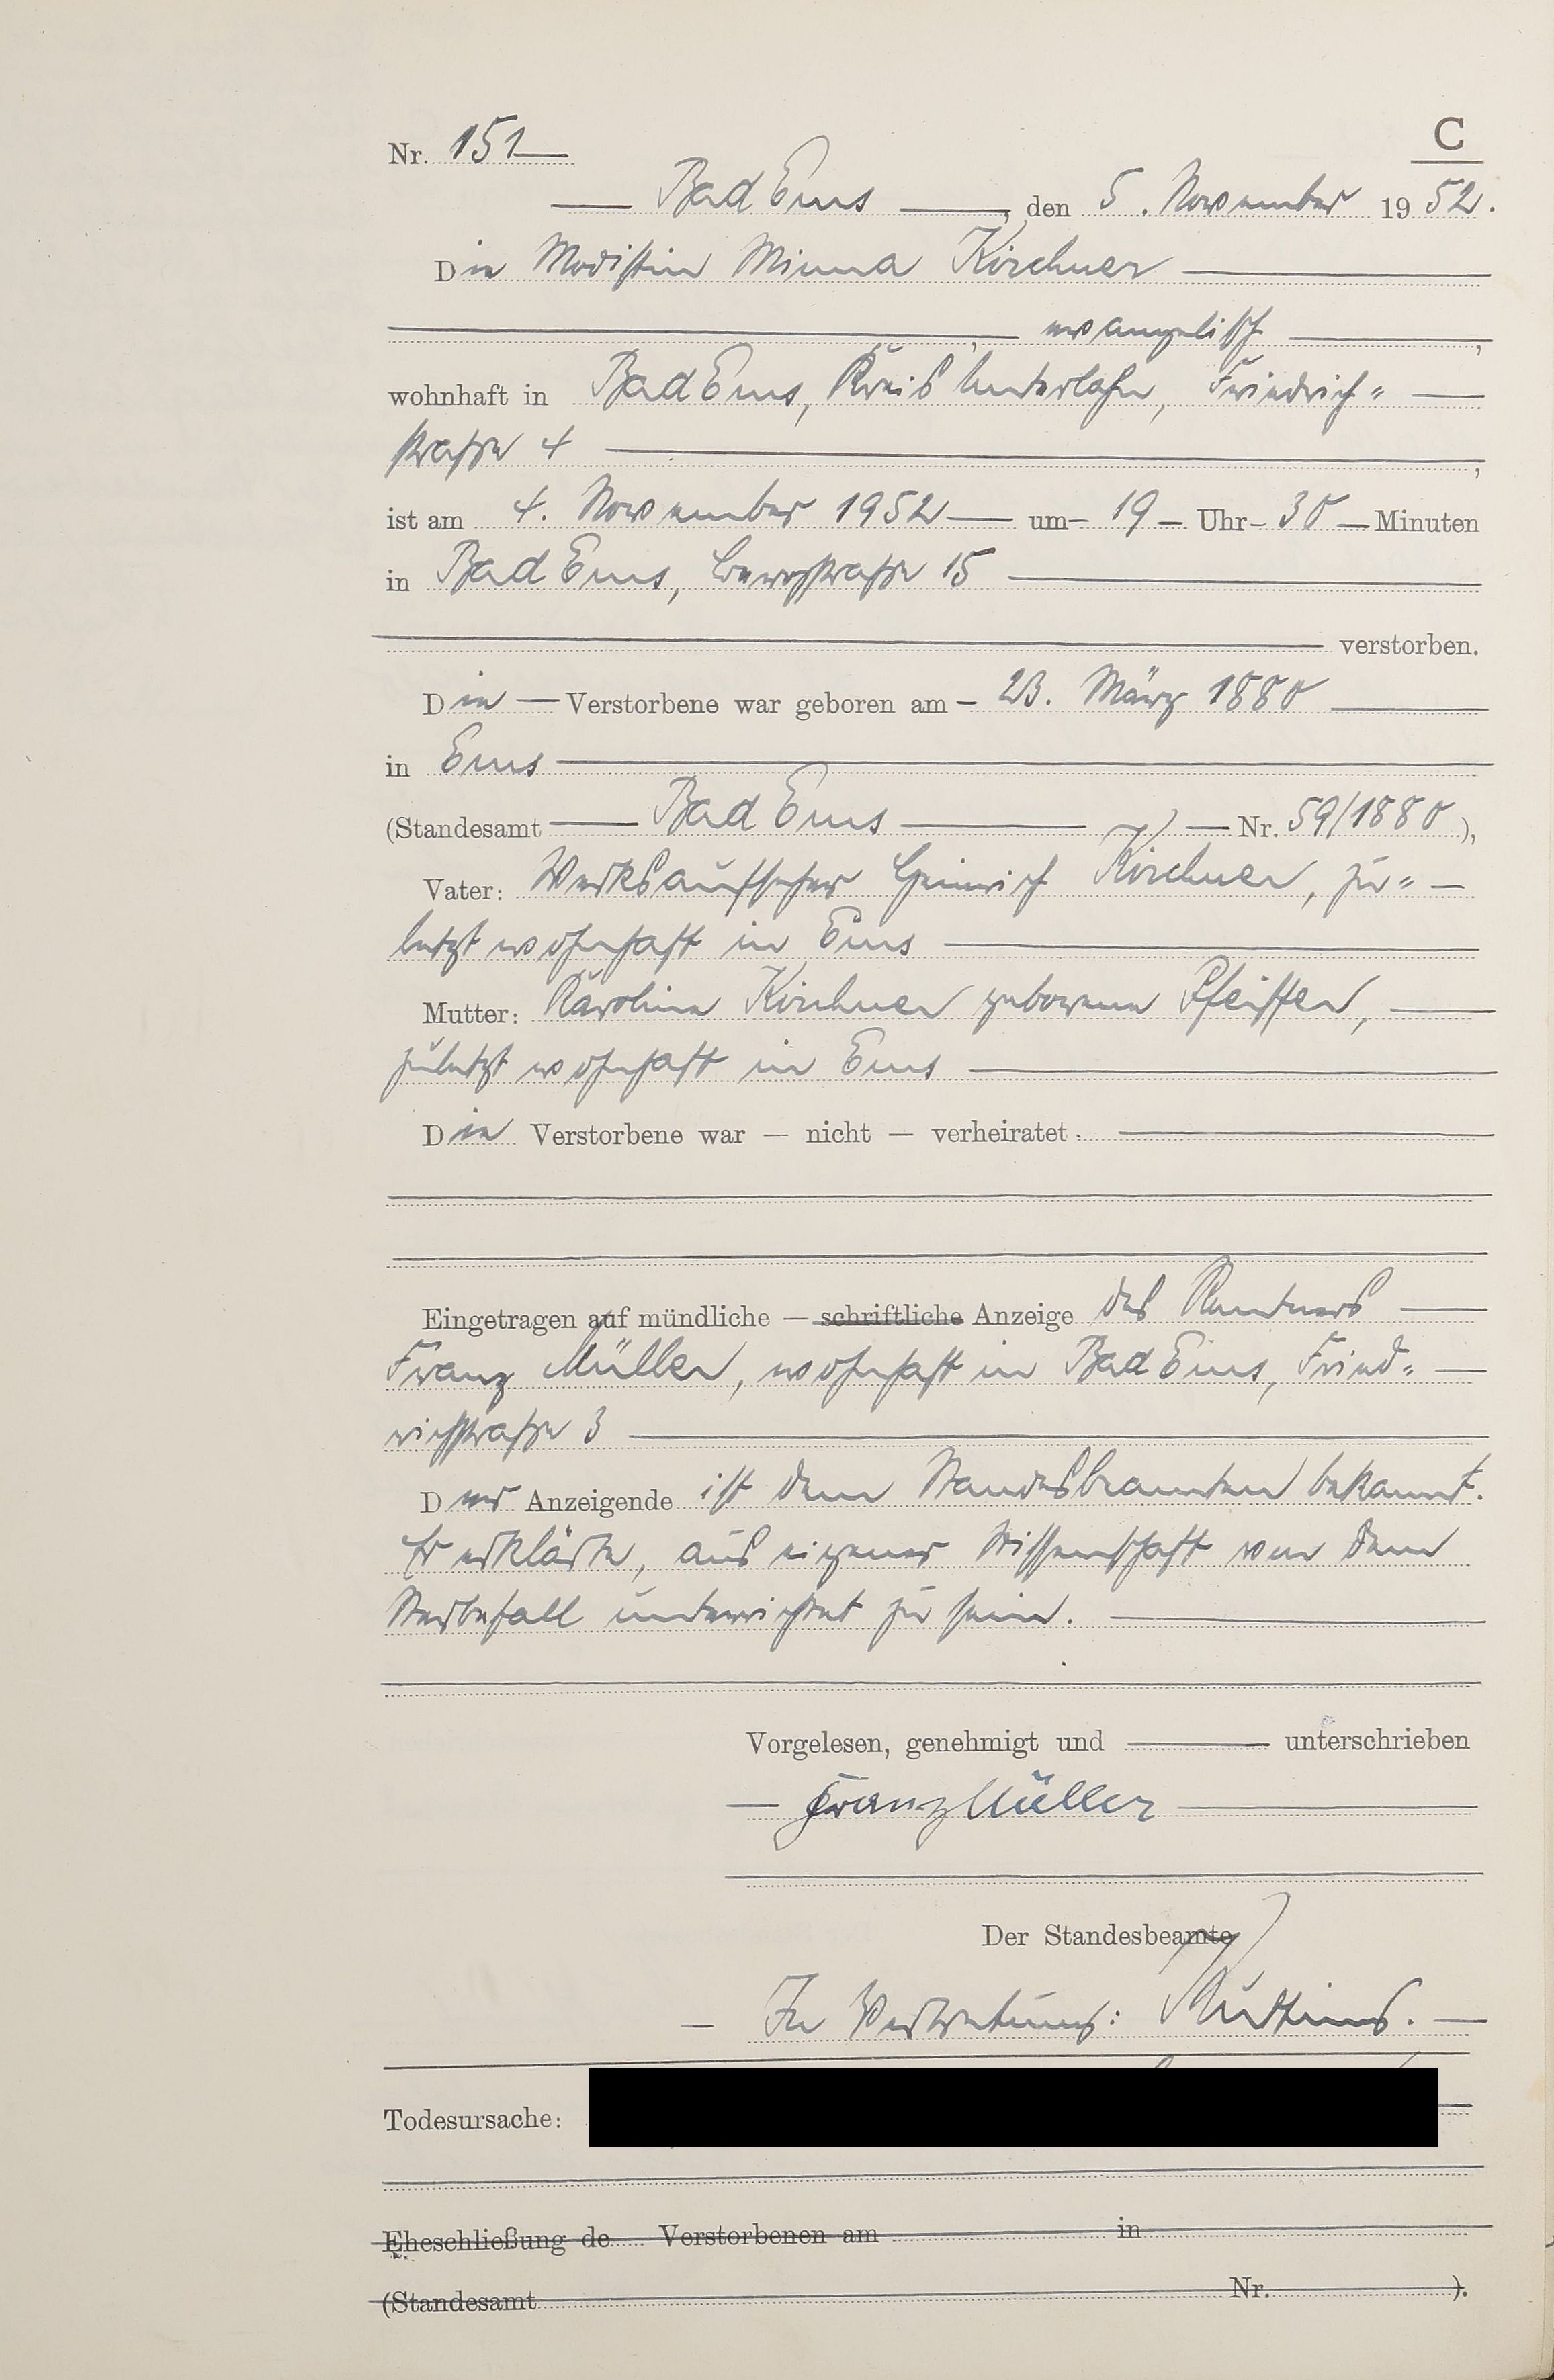 C
Nr. 151
Bad Ems, den 5. November 1952.
Die Modistin Minna Kirchner
, evangelisch,
wohnhaft in Bad Ems, Kreis Unterlahn, Friedrich-
straße 4,
ist am 4. November 1952 um 19 Uhr 30 Minuten
in Bad Ems, 15
verstorben.
Die Verstorbene war geboren am 23. März 1880
in Ems
(Standesamt Bad Ems Nr. 59/1880),
Vater: Werksaufseher Heinrich Kirchner, zu-
letzt wohnhaft in Ems
Mutter: Karoline Kirchner geborene Pfeiffer,
zuletzt wohnhaft in Ems
Die Verstorbene war — nicht — verheiratet.
Eingetragen auf mündliche — schriftliche Anzeige des Rentners
Franz Müller, wohnhaft in Bad Ems, Fried-
richstraße 3
Der Anzeigende ist dem Standesbeamten bekannt.
Er erklärte, aus eigener Wissenschaft von dem
Sterbefall unterrichtet zu sein.
Vorgelesen, genehmigt und unterschrieben
Franz Müller
Der Standesbeamte
In Vertretung:
Todesursache:
Eheschließung de Verstorbenen am in
(Standesamt Nr. ).